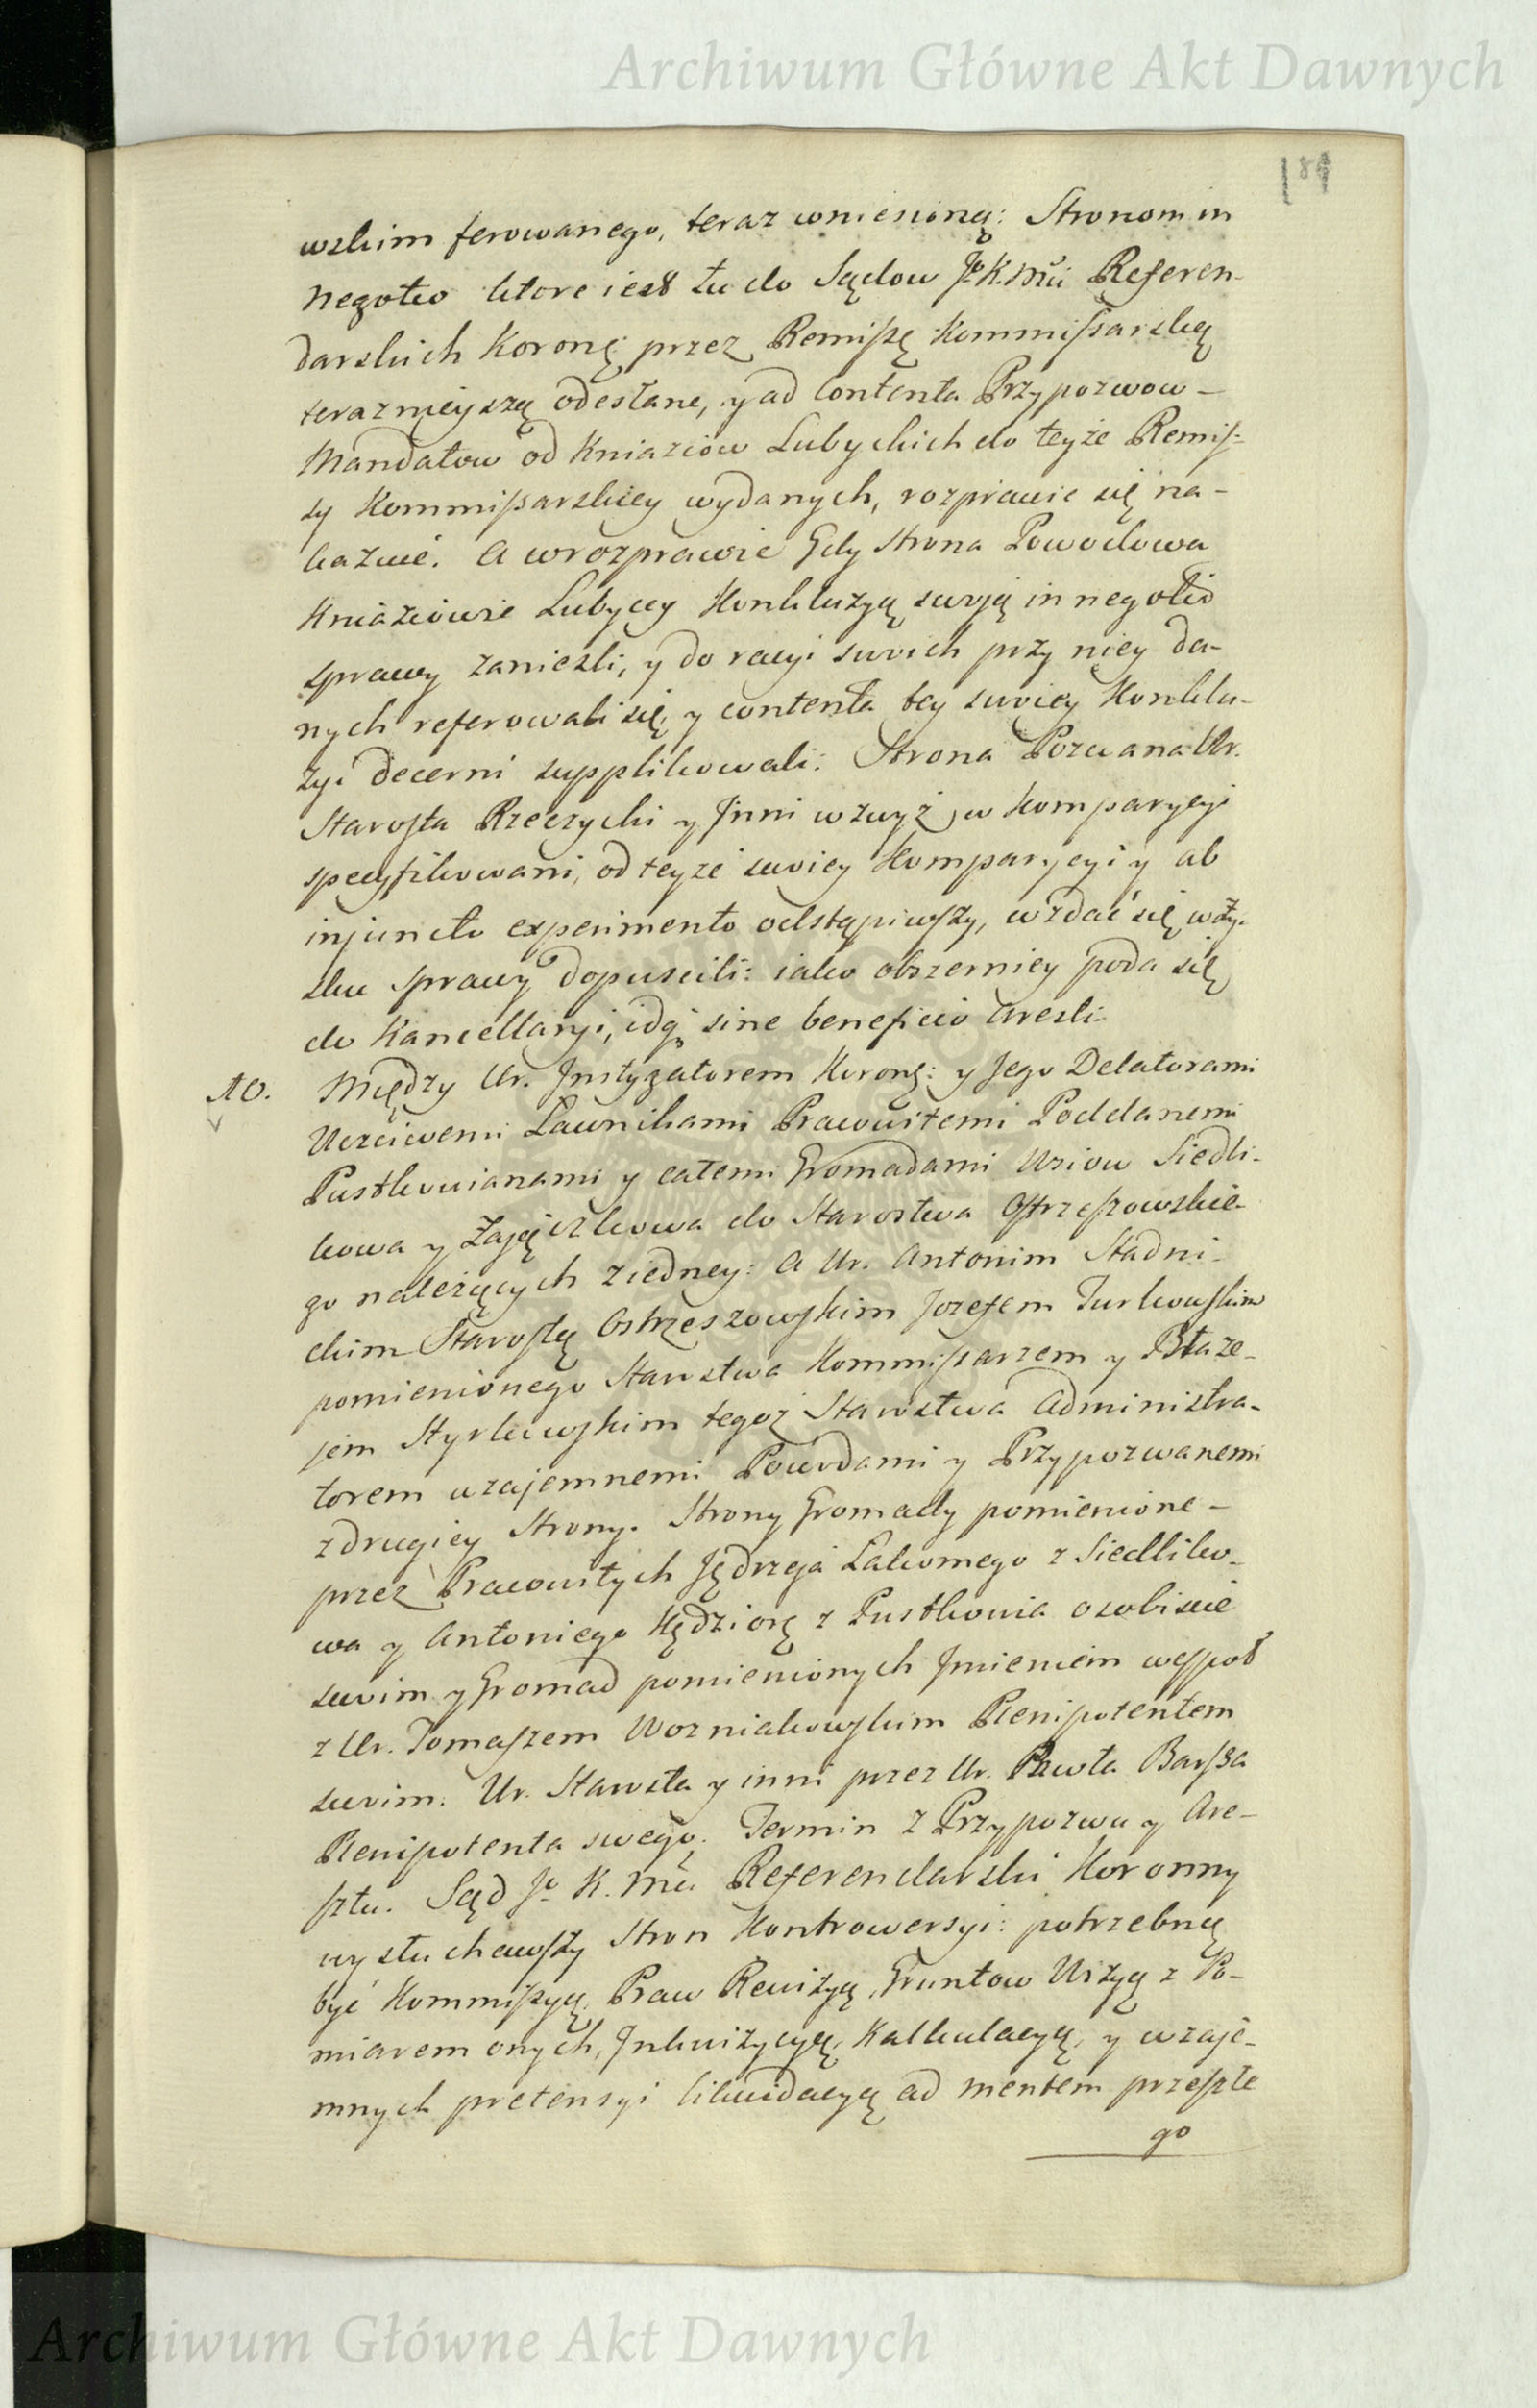 Archiwum Główne Akt Dawnych
189
wskim ferowanego, teraz wniesioną: Stronom in
negotio ktore iest tu do Sądow Jº K. Mci Referen-
darskich Koronę: przez Remißę Kommißarską
teraznieyszą odesłane, y ad Contenta Przypozwow -
Mandatow od Kniaziow Lubyckich do teyże Remiß-
sy Kommißarskiey wydanych, rozprawić się na-
kazuie. A w rozprawie Gdy Strona Powodowa
Kniaziowie Lubyccy Konkluzyą swoją in negotio
sprawy zanieśli, y do racyi swoich przy niey da-
nych referowali się, y contenta tey swoiey Konklu-
zyi decerni supplikowali: Strona Pozwana Ur.
Starosta Rzeczycki y Jnni wzwyż w Komparycyi
specyfikowani, od teyże swoiey Komparycyi y ab
injuncto experimento odstąpiwszy, wzdać się w zy-
sku sprawy dopuścili: iako obszerniey poda się
do Kancellaryi, idq sine beneficio Aresti.
10. Między Ur. Jnstygatorem Koronę: y Jego Delatorami
Uczciwemi Ławnikami Pracowitemi Poddanemi
Pustkowianami y całemi Gromadami Wsiow Siedli-
kowa y Zajączkowa do Starostwa Ostrzeszowskie-
go należących z iedney: A Ur. Antonim Stadni-
ckim Starostą Ostrzeszowskim Jozefem Turkowskim
pomienionego Starostwa Kommißarzem y Błaże-
jem Styrkowskim tegoż Starostwa Administra-
torem wzajemnemi Powodami y Przypozwanemi
z drugiey Strony. Strony Gromady pomienione -
przez Pracowitych Jędrzeja Łakomego z Siedliko-
wa y Antoniego Kędziorę z Pustkowia osobiście
swoim y Gromad pomienionych Jmieniem wespoł
z Ur. Tomaszem Wozniakowskim Plenipotentem
swoim. Ur. Starosta y inni przez Ur. Pawła Barsza
Plenipotenta swego. Termin z Przypozwu y Are-
sztu. Sąd Jº K. Mci Referendarski Koronny
wysłuchawszy Stron Kontrowersyi: potrzebną
być Kommißyą, Praw Rewizyą, Gruntow Wizyą z Po-
miarem onych, Jnkwizycyą, Kalkulacyą, y wzaje-
mnych pretensyi likwidacyą ad mentem przeszłe
go
Archiwum Główne Akt Dawnych